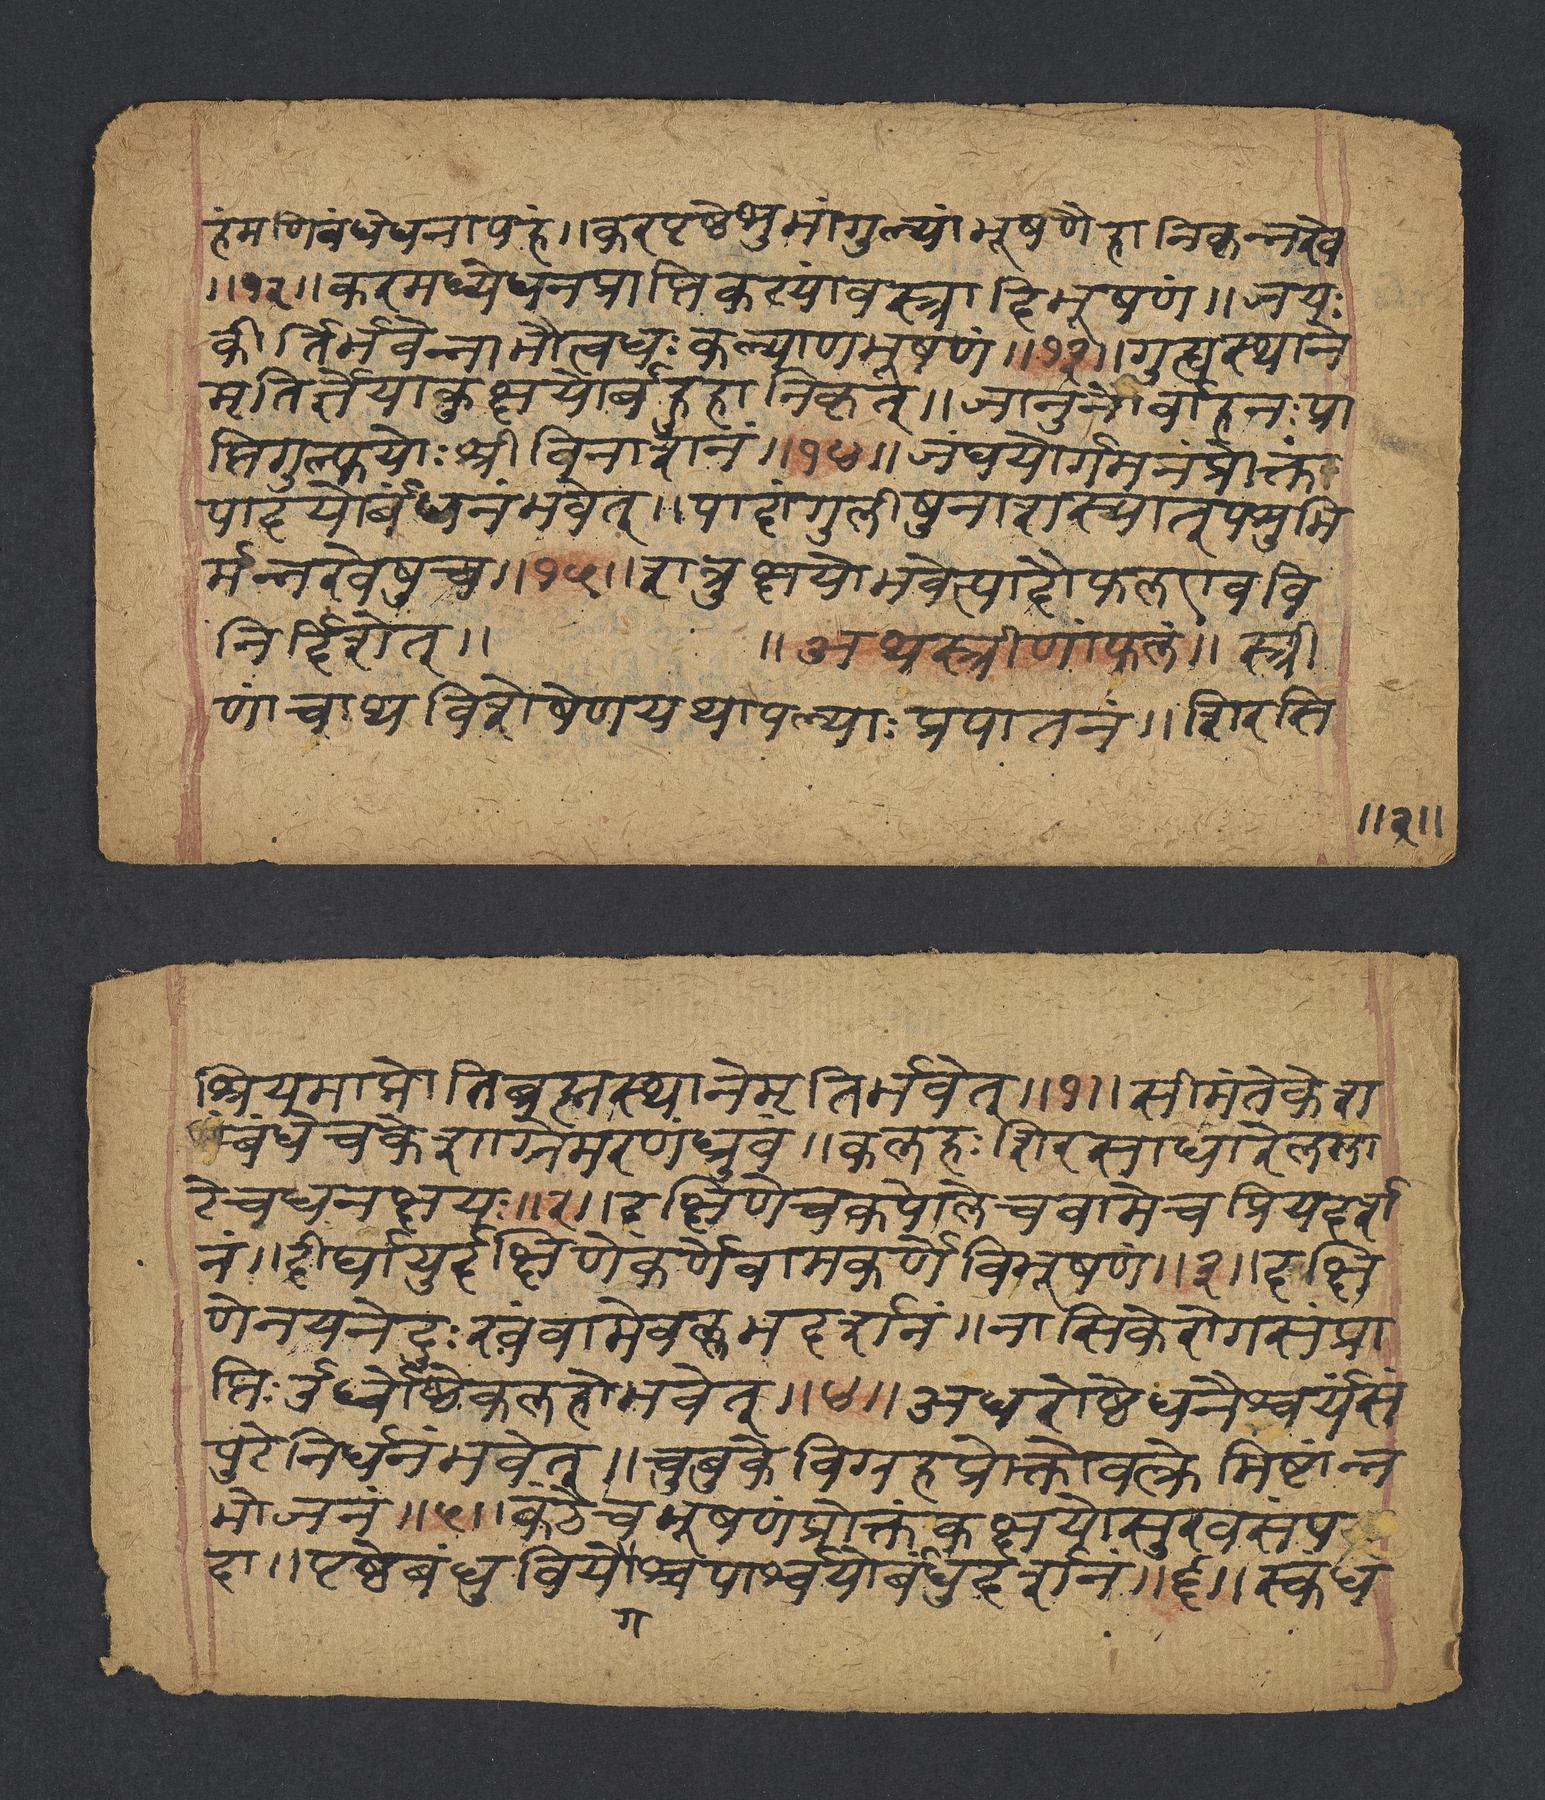 हंमणिबंधेधनापहं॥करपृष्ठेभुमांगुल्यांभूषणेहानिकृन्नखे
॥१२॥करमध्येधनप्राप्तिकट्यांवस्त्रादिभूषणं॥जयः
कीर्तिर्भवेन्नाभौत्वधःकल्याणभूषणं॥१३॥गुह्यस्थाने
मृतिर्ज्ञेयाकुक्षयोर्बहुहानिकृत्॥जानुनोर्वाहनःप्रा
प्तिगुल्फयोःश्रीविनाशनं॥१४॥जंघयोर्गमनंप्रोक्तं
पादयोर्बंधनंभवेत्॥पादांगुलीषुनाशस्यात्पसुभि
र्मन्नखेषुच॥१५॥शत्रुक्षयोभवेत्पादौफलएवंवि
निर्द्दिशेत्॥ ॥अथस्त्रीणांफलं॥स्त्री
णांचाथविशेषेणयथापल्याःप्रपातनं॥शिरसि
॥२॥
श्रियमाप्नोतिब्रह्मस्थानेमृतिर्भवेत्॥१॥सीमंतेकेश
बंधेचकेशाग्नेमरणंध्रुवं॥कलहःशिरसाधारेलला
टेचधनक्षयः॥२॥दक्षिणेचकपोलेचवामेचप्रियदर्श
नं॥दीर्घायुर्दक्षिणेकर्णेवामकर्णेविभूषणं॥३॥दक्षि
णेनयनेदुःखंवामेवल्लभदर्शनं॥नासिकेरोगसंप्रा
प्तिःर्उर्ध्वोष्ठेकलहोभवेत्॥४॥अधरोष्ठेधनैश्वर्यंसं
पुटेनिर्धनंभवेत्॥चुबुकेविग्रहप्रोक्तोवल्केमिष्टांन्न
भोजनं॥५॥कंठेचभूषणंप्रोक्तंकक्षयोसुखसंप
दा॥पृष्ठेबंधुवियोश्चपार्श्वयोर्बंधुदर्शनं॥६॥स्कंध
ग